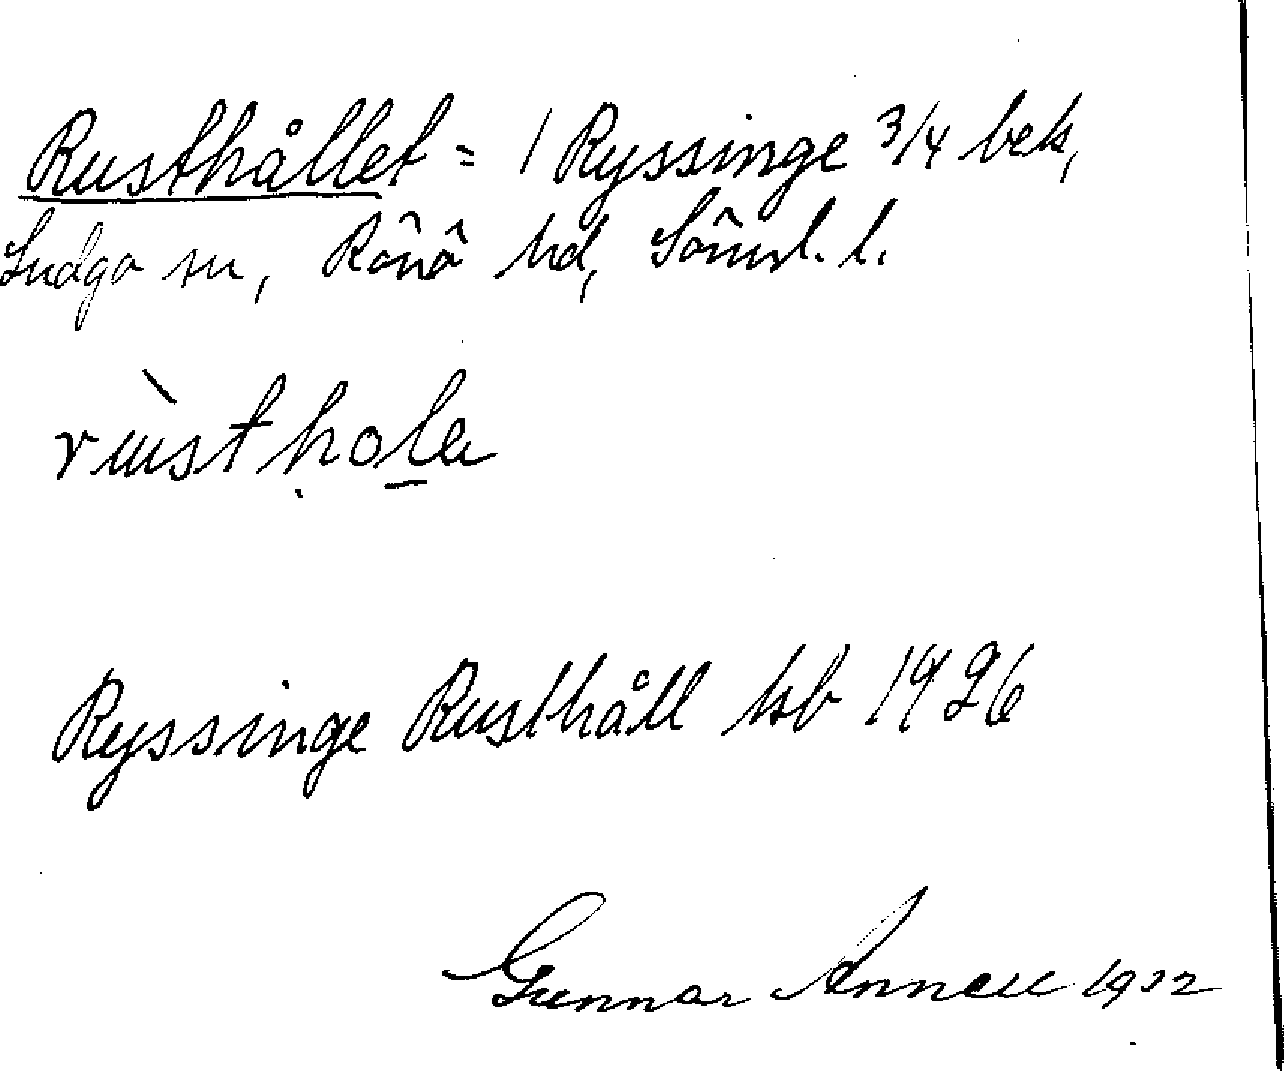 Rusthållet = 1 Ryssinge 3/4 bek,
Ludgo sn, Rönö hd, Söderml. l.
Ryssinge Rusthåll hsb 1926
Gunnar Annell 1932